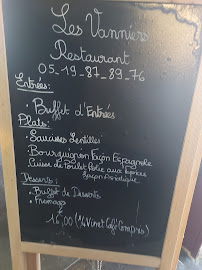 Les Vanniers
Restaurant
05-19-87-89-76
Entrées:
- Buffet d'Entrées
Plats:
- Saucisses Lentilles
- Bourguignon façon Espagnole
- Cuisse de Poulet Poêlée aux Epices
façon Asiatique
Desserts:
- Buffet de Desserts
- Fromages
16,00 (¼ Vin et Café Compris)